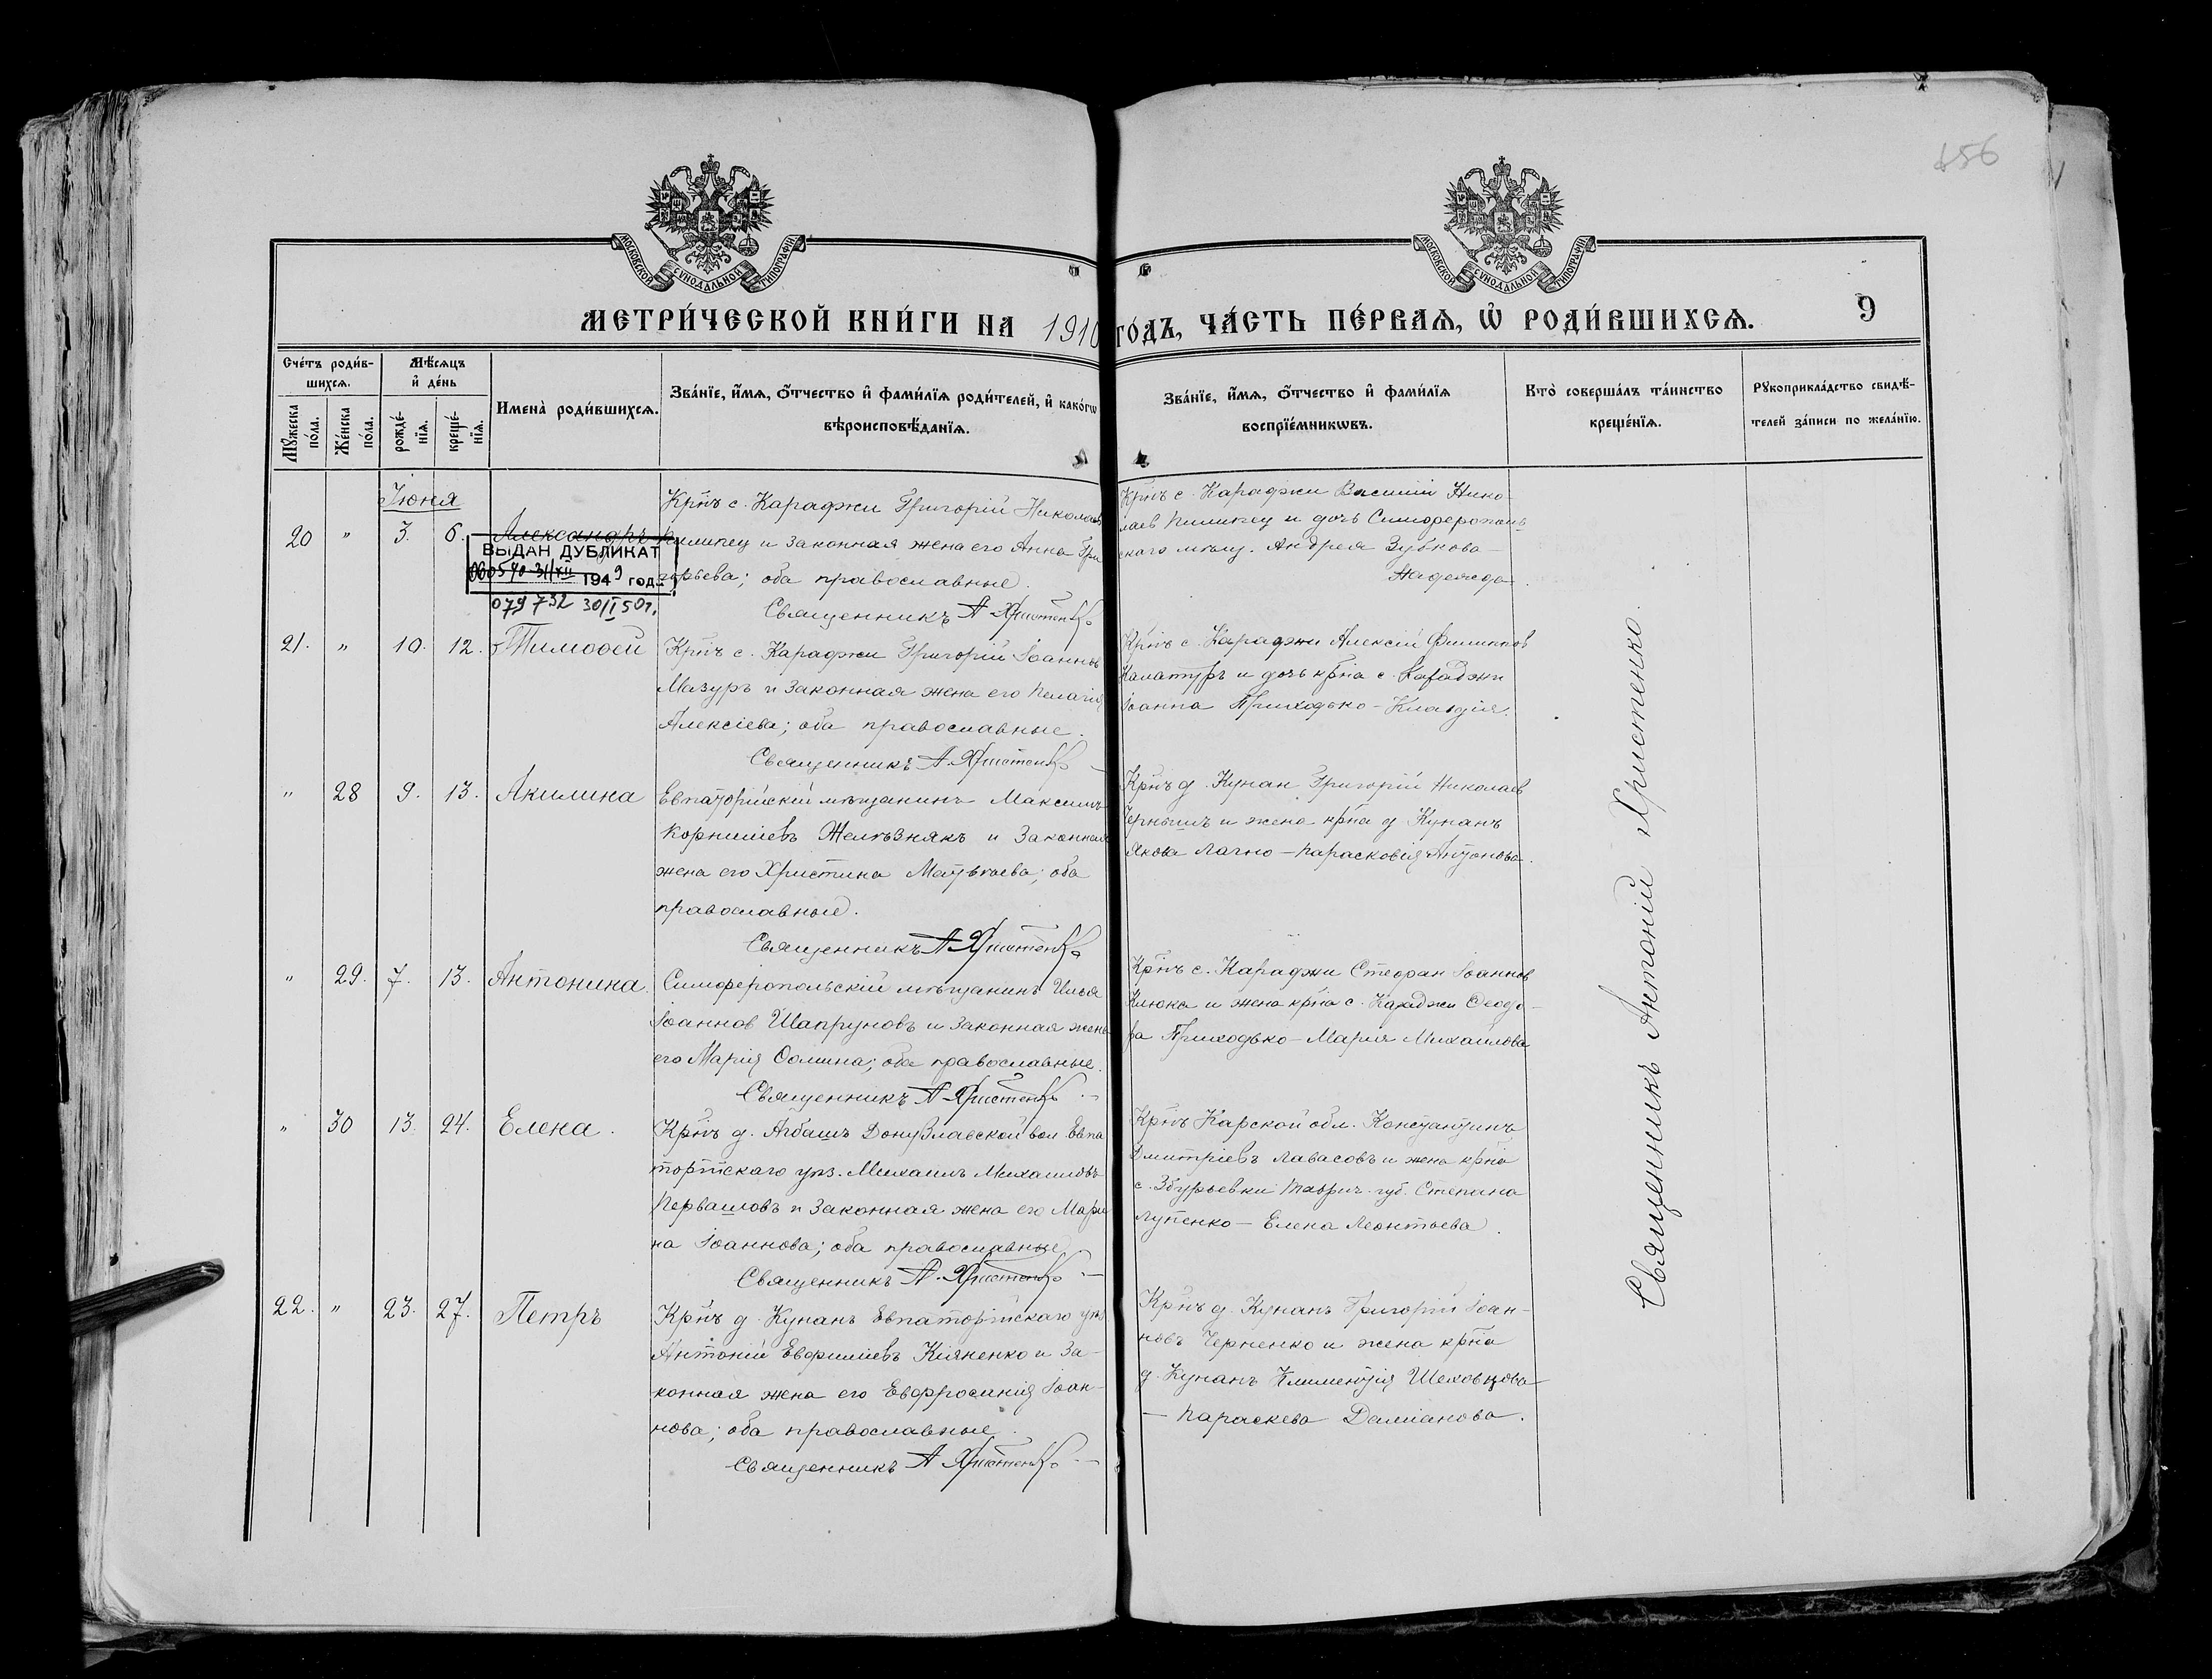 456
МОСКОВСКОЙ СѴНОДАЛЬНОЙ ТИПОГРАФІИ
МОСКОВСКОЙ СѴНОДАЛЬНОЙ ТИПОГРАФІИ
МЕТРИ́ЧЕСКОЙ КНИ́ГИ НА 1910 ГО́ДЪ, ЧА́СТЬ ПЕ́РВАѦ, Ѡ РОДИ́ВШИХСѦ.
9
Сче́тъ роди́в-
шихсѧ.
Мꙋ́жеска
по́ла.
Же́нска
по́ла.
Мѣ́сѧцъ
и҆ де́нь
рожде́-
нїѧ.
креще́-
нїѧ.
Имена̀ роди́вшихсѧ.
Зва́нїе, и҆́мѧ, ѻ҆́тчество и҆ фами́лїѧ роди́телей, и҆ како́гѡ
вѣроисповѣ́данїѧ.
Зва́нїе, и҆́мѧ, ѻ҆́тчество и҆ фами́лїѧ
воспрїе́мникѡвъ.
Кто̀ соверша́лъ та́инство
креще́нїѧ.
Рꙋкоприкла́дство свидѣ́-
телей за́писи по жела́нїю.
Іюня
20 " 3. 6. Александръ
ВЫДАН ДУБЛИКАТ
1949 год
079732 30/I 50г.
Крнъ с. Караджи Григорій Николаев
Пилипец и законная жена его Анна Гри
горьева; оба православные.
Священникъ А Христенко
Крнъ с. Караджи Василий Нико-
лаев Пилипец и дочь Симферополь-
скаго мѣщ. Андрея Зубкова-
Надежда.
21. " 10. 12. Тимоѳей
Крнъ с. Караджи Григорій Іоаннов
Мазуръ и законная жена его Пелагія
Алексіева; оба православные.
Священникъ А. Христенко
Крнъ с. Караджи Алексій Филиппов
Калатуръ и дочь крна с. Караджи
Іоанна Приходько - Клавдія.
" 28 9. 13. Акилина
Евпаторійскій мѣщанинъ Максимъ
Корниліевъ Желѣзнякъ и законная
жена его Христина Матѳеева; оба
православные.
Священникъ А Христенко
Крнъ д. Кунан Григорій Николаев
Чернышъ и жена крна д. Кунанъ
Якова Лагно - Парасковія Антонова.
" 29. 7. 13. Антонина.
Симферопольскій мѣщанинъ Илья
Іоаннов Шапруновъ и законная жена
его Марія Ѳомина; оба православные.
Священникъ А Христенко
Крнъ с. Караджи Стефан Іоаннов
Клюка и жена крна с. Караджи Ѳеодо-
ра Приходько - Мария Михайлова
" 30 13. 24. Елена.
Крнъ д. Агбашъ Донузлавской вол. Евпа
торійскаго уѣз. Михаилъ Михаиловъ
Первашовъ и законная жена его Мари
на Іоаннова; оба православные
Священникъ А. Христенко
Крнъ Карской обл. Константинъ
Дмитріевъ Лавасовъ и жена крна
с. Збурьевки Таврич. губ. Степана
Лутенко - Елена Леонтьева.
22. " 23. 27. Петръ
Крнъ д. Кунанъ Евпаторійскаго уѣз.
Антоній Евфиміевъ Кіяненко и за-
конная жена его Евфросинія Іоан-
нова; оба православные.
Священникъ А Христенко
Крнъ д. Кунанъ Григорій Іоан-
новъ Черненко и жена крна
д. Кунанъ Климентія Шеховцова
- Параскева Даміанова.
Священникъ Антоній Христенко.